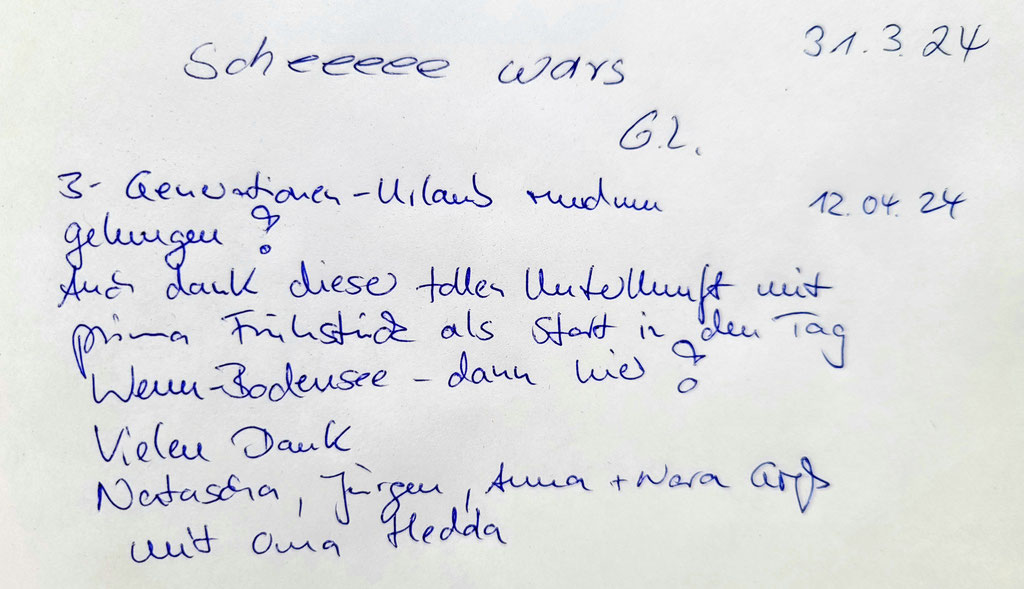 31.3.24
Scheeeee wars
G.L.
3-Generationen-Urlaub rundum 12.04.24
gelungen!
Auch dank dieser tollen Unterkunft mit
prima Frühstück als Start in den Tag
Wenn-Bodensee-dann hier!
Vielen Dank
Natascha, Jürgen, Anna + Nora
mit Oma Hedda